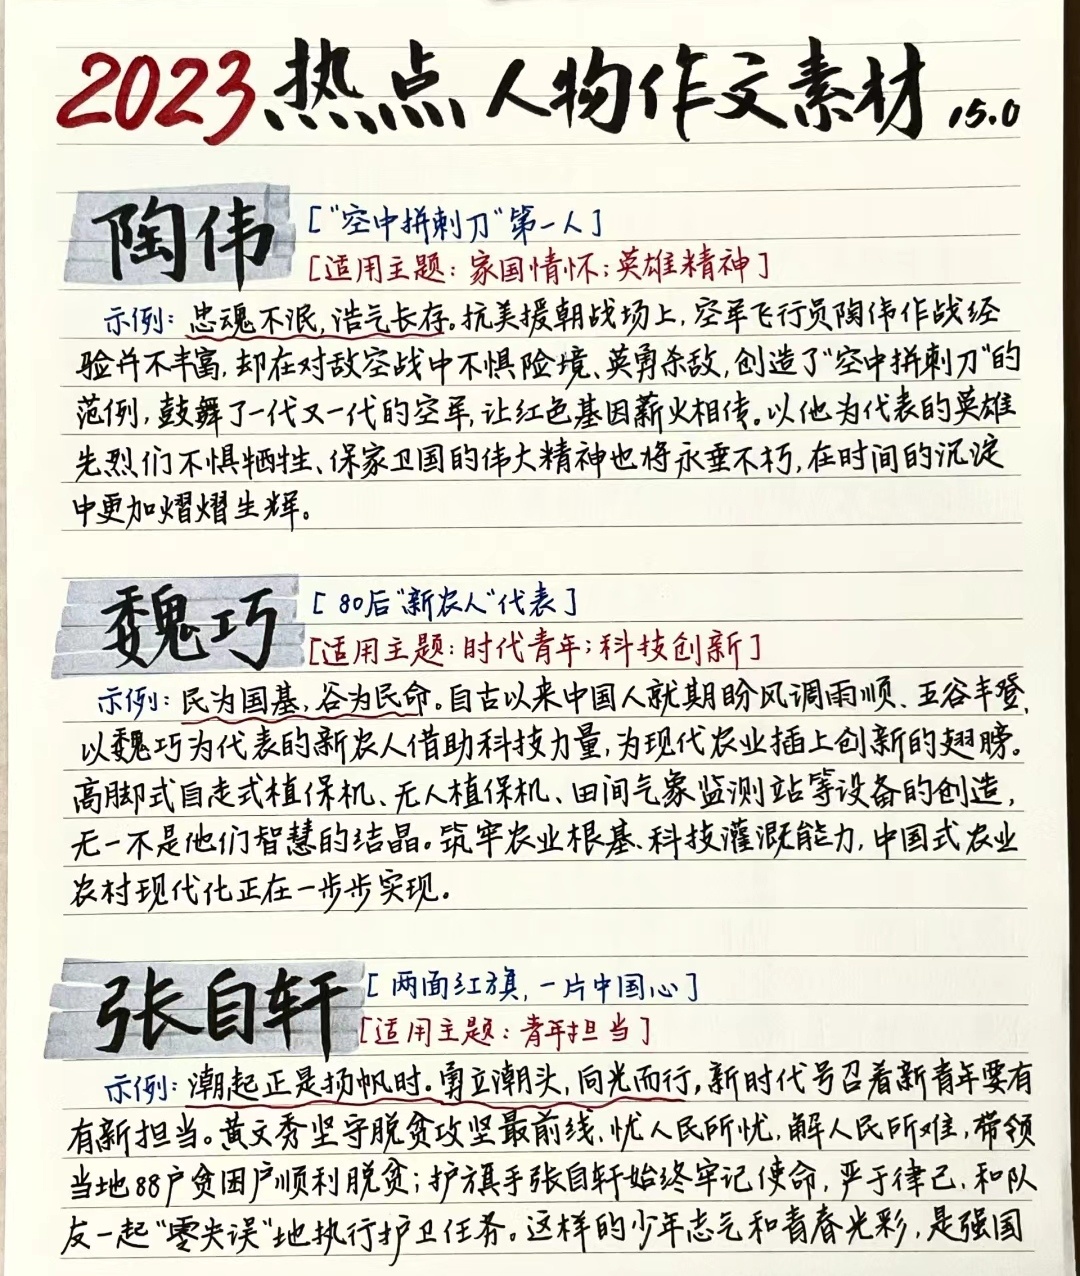 2023热点人物作文素材 15.0
陶伟
["空中拼刺刀"第一人]
[适用主题：家国情怀；英雄精神]
示例：忠魂不泯，浩气长存。抗美援朝战场上，空军飞行员陶伟作战经
验并不丰富，却在对敌空战中不惧险境、英勇杀敌，创造了"空中拼刺刀"的
范例，鼓舞了一代又一代的空军，让红色基因薪火相传。以他为代表的英雄
先烈们不惧牺牲、保家卫国的伟大精神也将永垂不朽，在时间的沉淀
中更加熠熠生辉。
魏巧
[80后"新农人"代表]
[适用主题：时代青年；科技创新]
示例：民为国基，谷为民命。自古以来中国人就期盼风调雨顺、五谷丰登，
以魏巧为代表的新农人借助科技力量，为现代农业插上创新的翅膀。
高脚式自走式植保机、无人植保机、田间气象监测站等设备的创造，
无一不是他们智慧的结晶。筑牢农业根基、科技灌溉能力，中国式农业
农村现代化正在一步步实现。
张自轩
[两面红旗，一片中国心]
[适用主题：青年担当]
示例：潮起正是扬帆时。勇立潮头，向光而行，新时代号召着新青年要有
有新担当。黄文秀坚守脱贫攻坚最前线，忧人民所忧，解人民所难，带领
当地88户贫困户顺利脱贫；护旗手张自轩始终牢记使命，严于律己，和队
友一起"零失误"地执行护卫任务。这样的少年志气和青春光彩，是强国